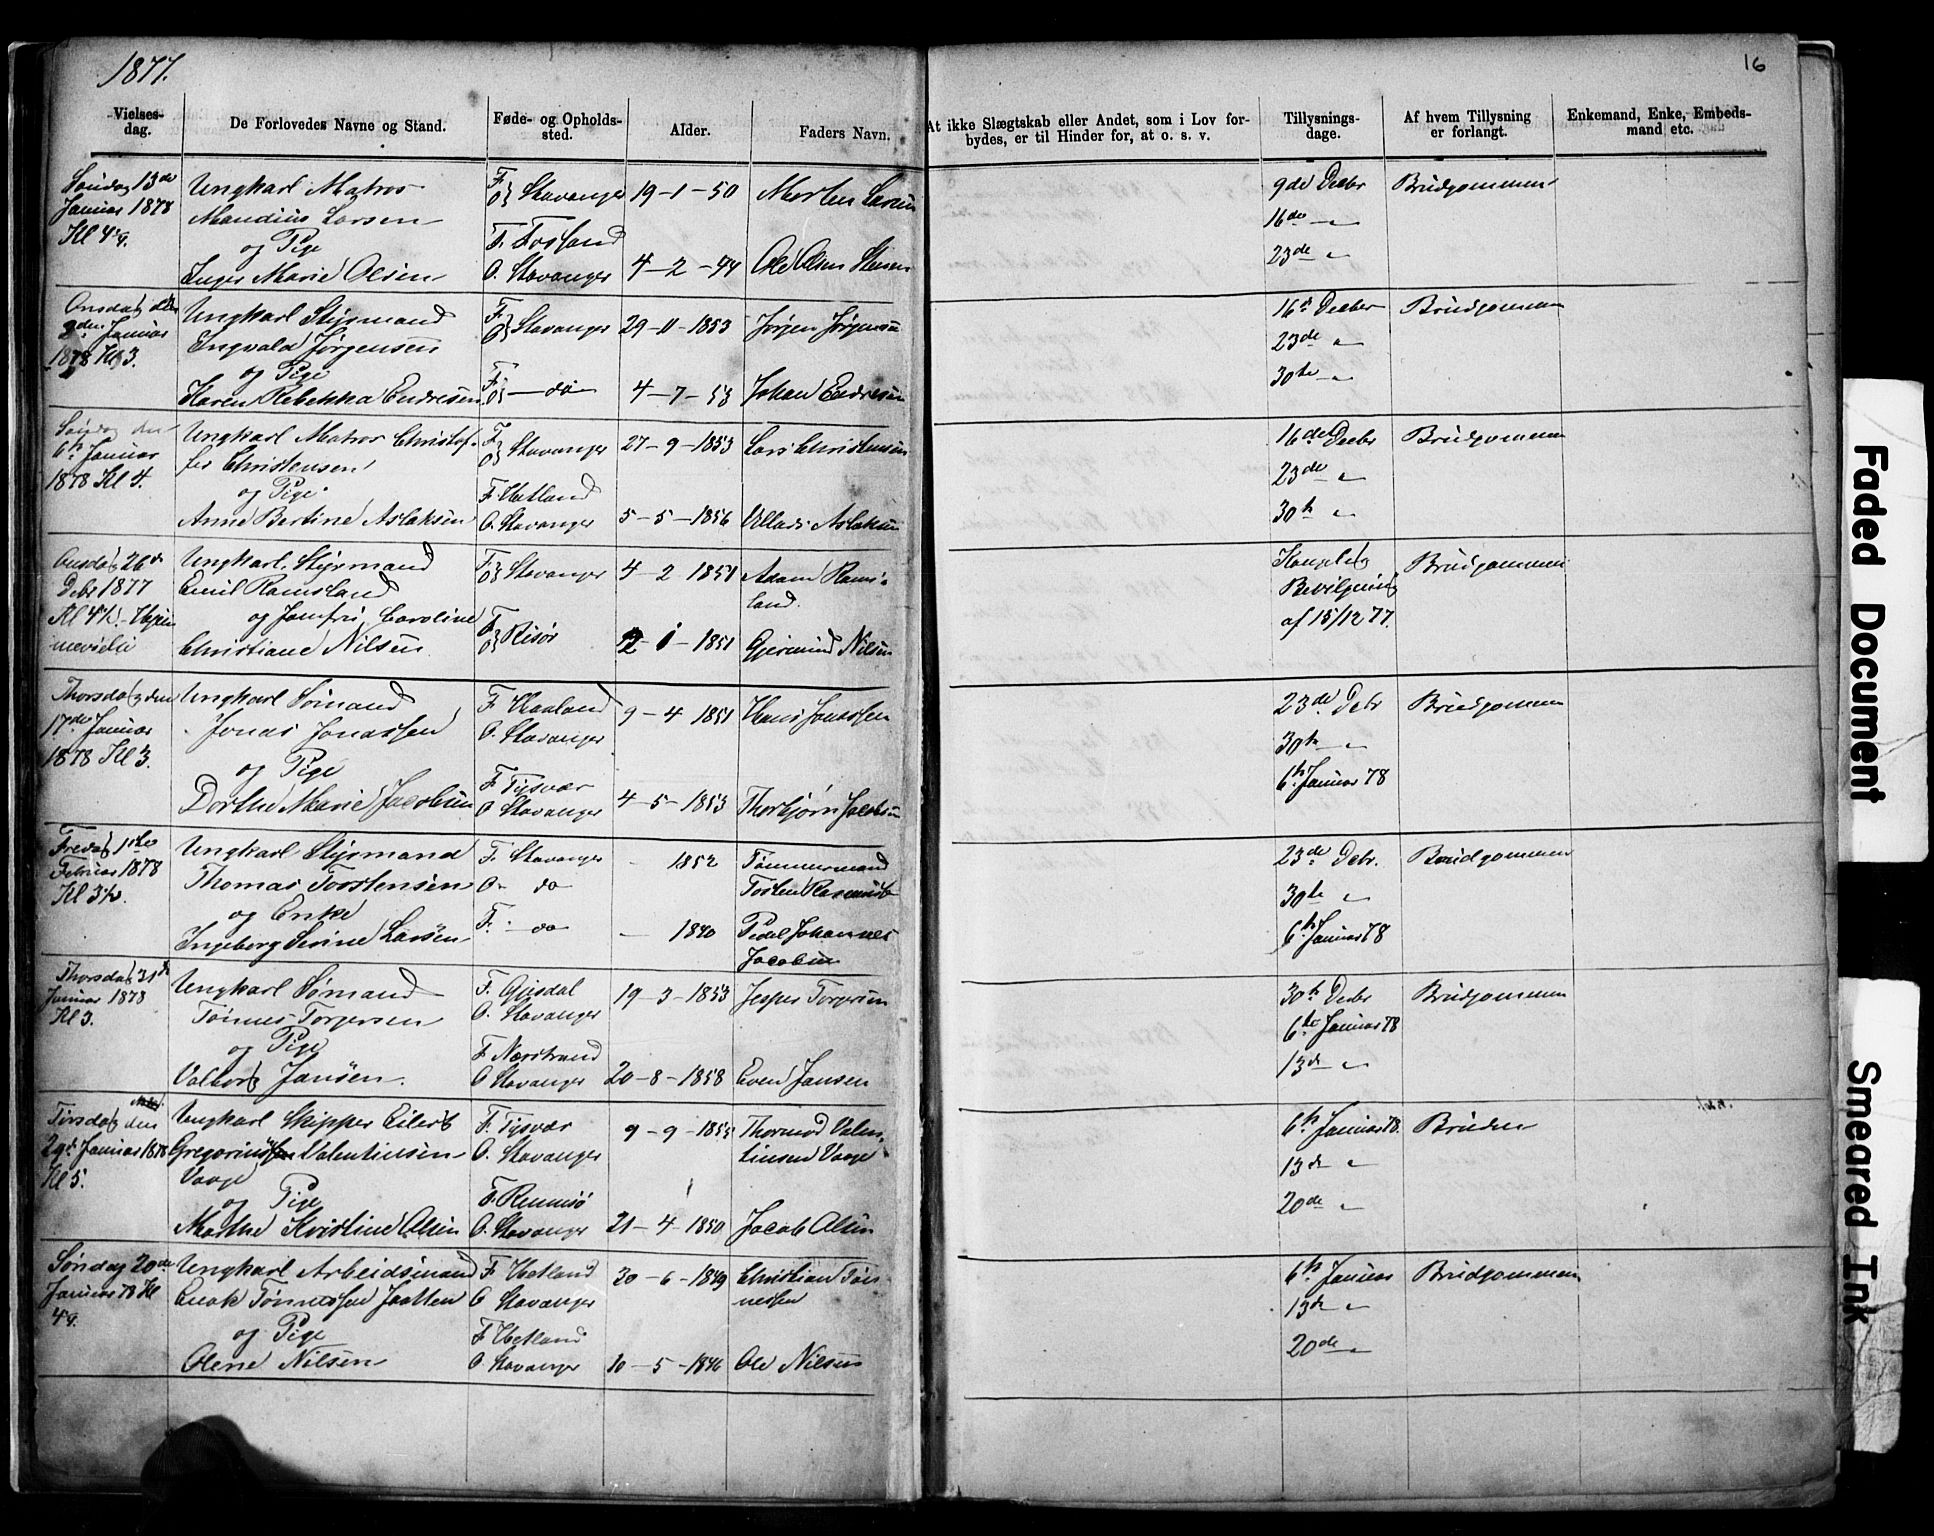 1877.
16
Vielses-
dag.
De Forlovedes Navne og Stand.
Føde- og Opholds-
sted.
Alder.
Faders Navn.
At ikke Slægtskab eller Andet, som i Lov for-
bydes, er til Hinder for, at o. s. v.
Tillysnings-
dage.
Af hvem Tillysning
er forlangt.
Enkemand, Enke, Embeds-
mand etc.
Søndag 13de Ungkarl Matros F. Stavanger 19-1-50 Morten Larsen 9de Decbr Brudgommen
Januar 1878 Mandius Larsen O. 16de "
Kl og Pige F. Fosland 23de "
Inger Marie Olsen O. Stavanger 4-2-44 Ole Olsen
Onsdag den Ungkarl Styrmand F. Stavanger 29-11-1853 Jørgen Jørgensen 16de Decber Brudgommen
Januar Engvald Jørgensen O. 23de "
1878 Kl 3. og Pige F. 30te "
Karen Rebekka Endresen O. do 4-7-53 Johan Endresen
Søndag den Ungkarl Matros Christof- F. Stavanger 27-9-1853 Lars Christensen 16de Decbr Brudgommen
6te Januar fer Christensen O. 23de "
1878 Kl 4. og Pige F. Hetland 30te "
Anne Bertine Aslaksen O. Stavanger 5-5-1856 Aslaksen
Onsdag 26de Ungkarl Styrmand F. Stavanger 4-2-1851 Adam Rams- Brudgommen
Debr 1877 Emil Ramsland O. land. Bevilgning
Kl Hjem- og Jomfru Caroline F. Risør af 15/12 77.
mevielse Christiane Nilsen O. 2-1-1851 Nilsen
Thorsdag den Ungkarl Sømand F. Haaland 9-4-1851 Hans Jonassen 23de Debr Brudgommen
17de Januar Jonas Jonassen O. Stavanger 30te "
1878 Kl 3. og Pige F. Tysvær 6te Januar 78
Dorthe Marie Jacobsen O Stavanger 4-5-1853 Thorbjørn Jacobsen
Fredag 1ste Ungkarl Styrmand F. Stavanger 1852 Tømmermand 23de Debr. Brudgommen
Februar 1878 Thomas Torstensen O- do Tosten 30te "
Kl 3½. og Enke F. - do 1840 Pedel Johannes 6te Januar 78
Ingeborg Serine Larsen Jacobsen
Thorsdag 31te Ungkarl Sømand F. Gjesdal 19-3-1853 Jesper Torgersen 30te Decbr Brudgommen
Januar 1878 Tønnes Torgersen O. Stavanger 6te Januar 78
Kl 3. og Pige F Nærstrand 13de "
Valborg Jansen. O Stavanger 20-8-1858 Even Jansen
Tirsdag den Ungkarl Skipper Eilert F. Tysvær 9-9-1855 Thormod Valen- 6te Januar 78. Bruden
29de Januar 1878 Valentinsen O. Stavanger tinsen Vaage 13de "
Kl 5. Vaage F. Rennesø 20de "
og Pige
Marthe Kristine Olsen O. Stavanger 21-4-1850 Jacob Olsen
Søndag 20de Ungkarl Arbeidsmand F Hetland 30-6-1849 Christian Tøn- 6te Januar Brudgommen
Januar 78 Kl Enok Tønnessen Jaatten O Stavanger nessen 13de "
og Pige F Hetland 20de "
Olene Nilsen O Stavanger 10-5-1846 Ole Nilsen
Faded Document
Smeared Ink